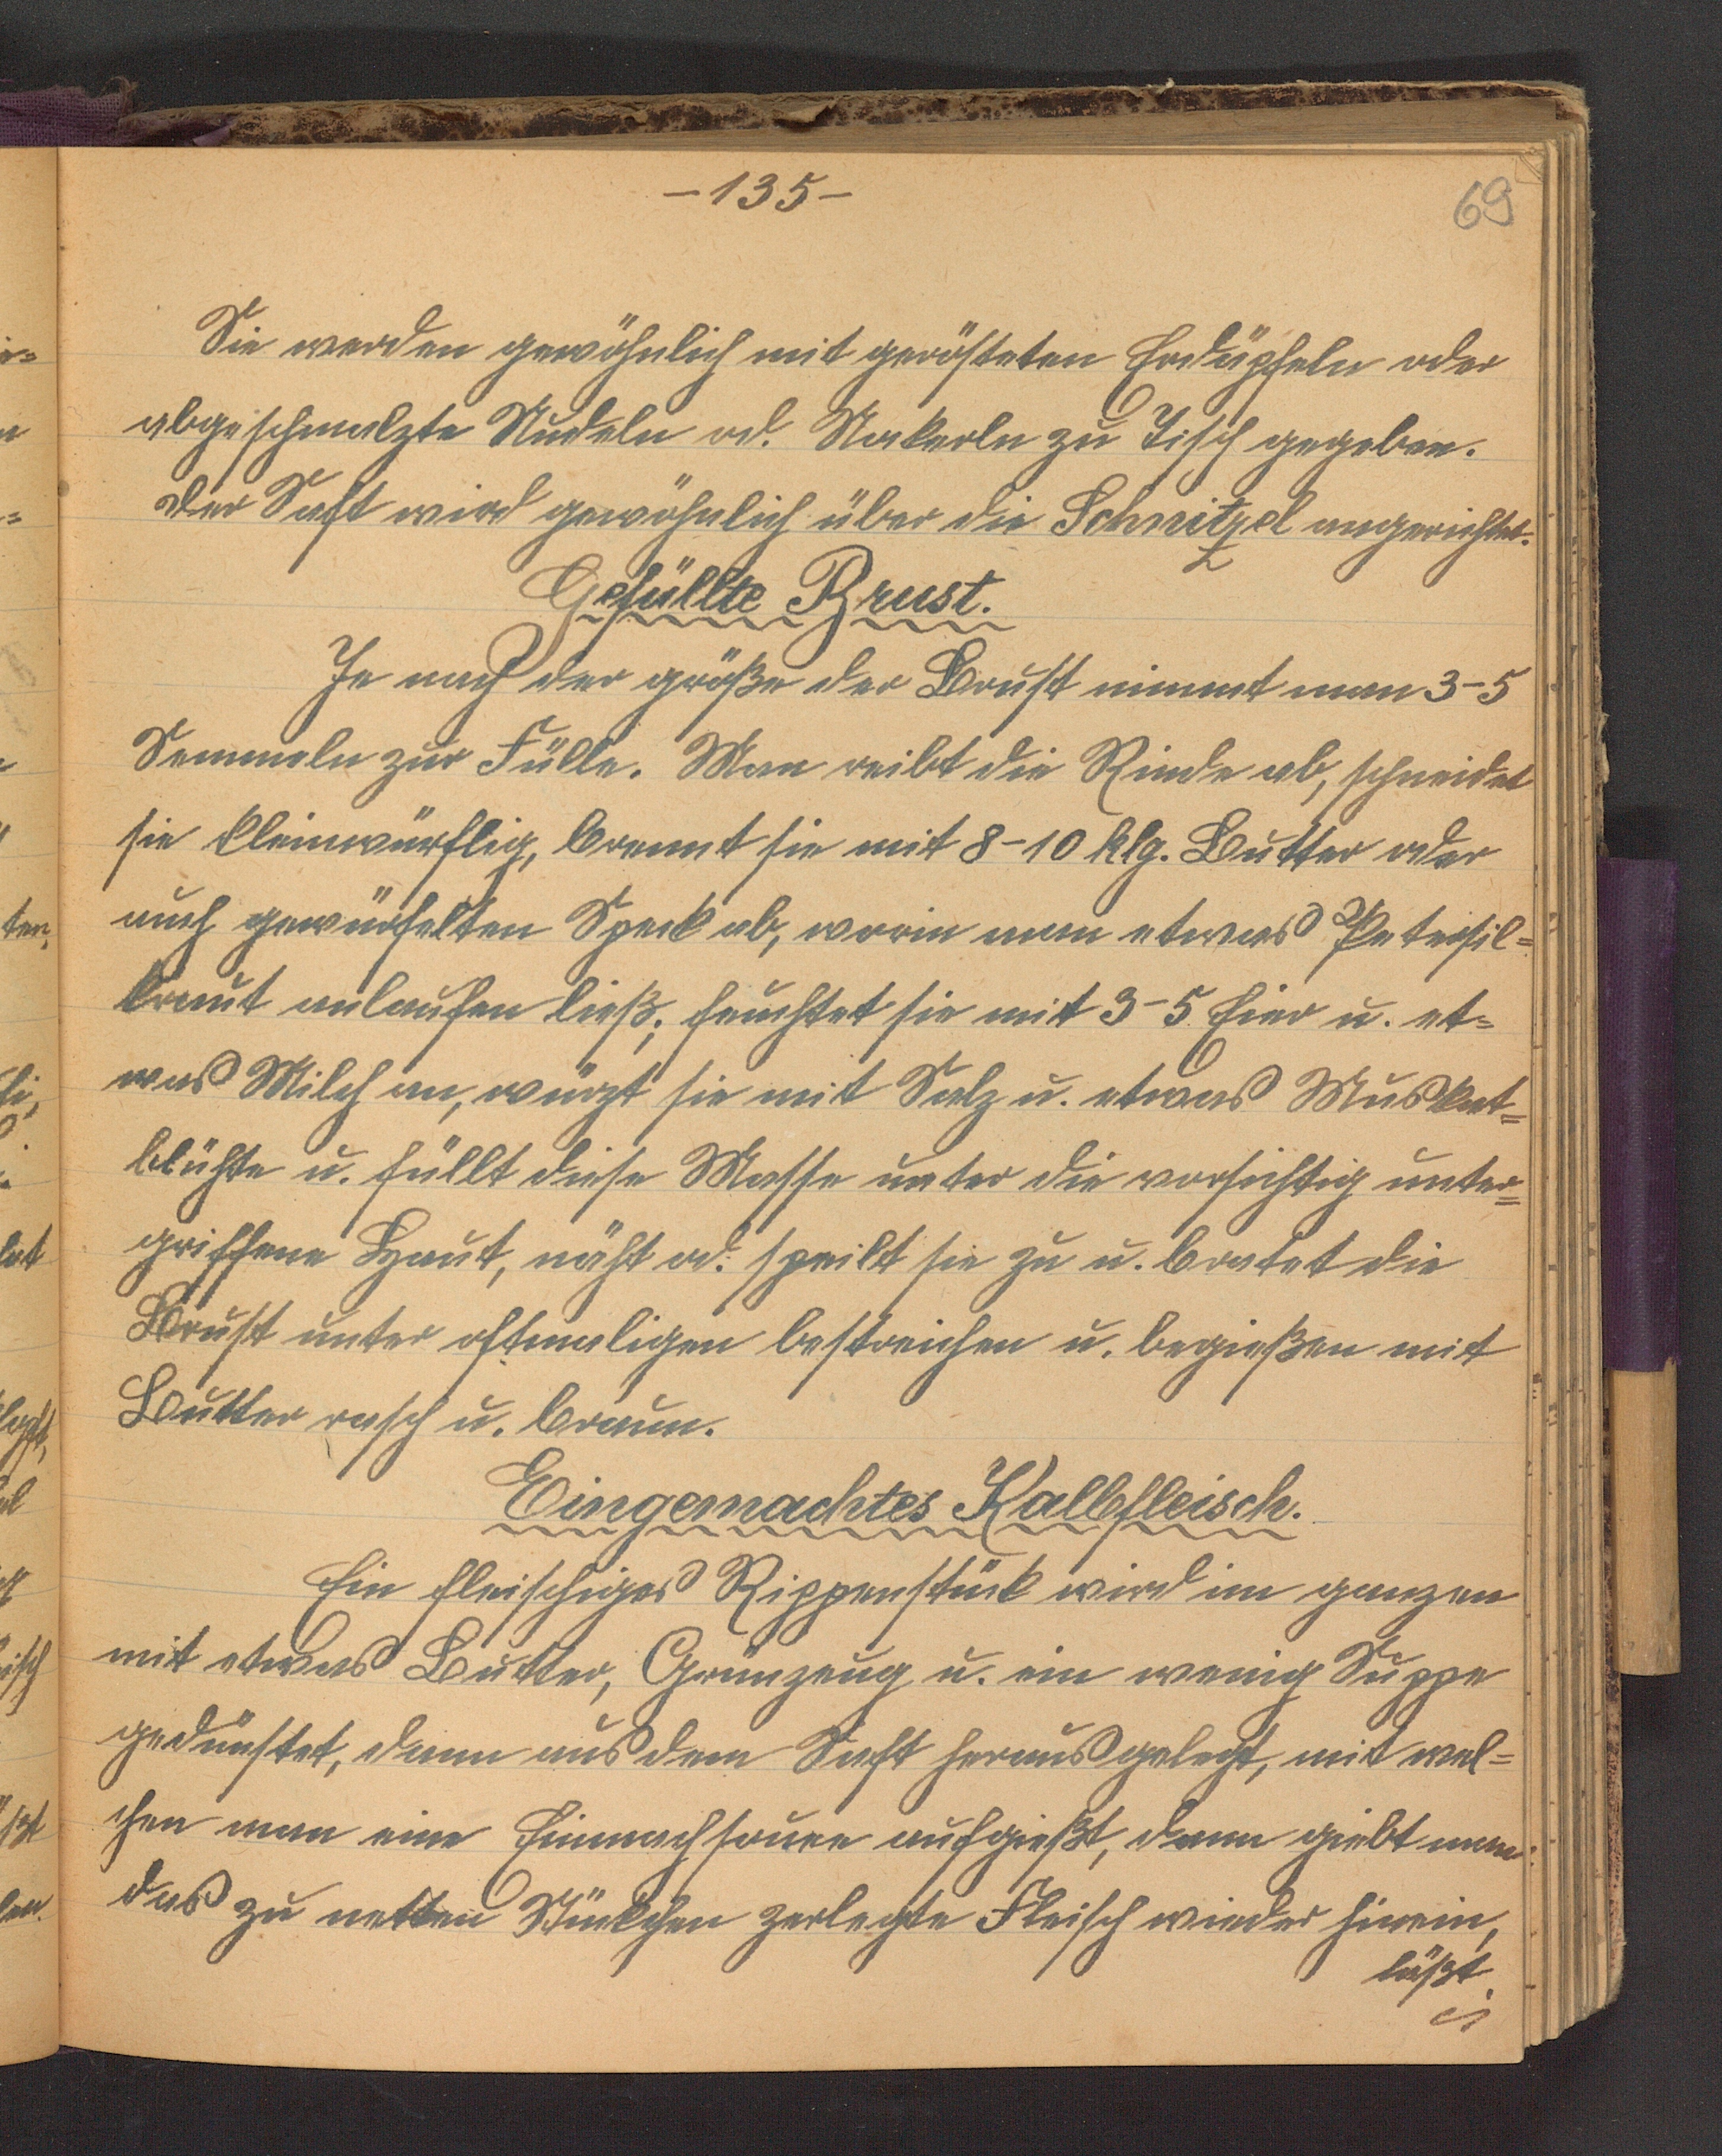 -135-
69
Sie werden gewöhnlich mit gerösteten Erdäpfeln oder
abgeschmalzte Nudeln od. Nokerln zu Tisch gegeben.
Der Saft wird gewöhnlich über die Schnitzel angerichtet.
Gefüllte Brust.
Je nach der größe der Brust nimmt man 3-5
Semmeln zur Fülle. Man reibt die Rinde ab, schneidet
sie kleinwürflig, brennt sie mit 8-10 klg. Butter oder
auch gewürfelten Speck ab, worin man etwas Petersil=
kraut anlaufen ließ; feuchtet sie mit 3-5 Eier u. et=
was Milch an, würzt sie mit Salz u. etwas Muskat=
blühte u. füllt diese Masse unter die vorsichtig unter=
griffene Haut, näht od. speilt sie zu u. bratet die
Brust unter oftmaligen bestreichen u. begießen mit
Butter rasch u. braun.
Eingemachtes Kalbfleisch.
Ein fleischiges Rippenstück wird im ganzen
mit etwas Butter, Grünzeug u. ein wenig Suppe
gedünstet, dann aus dem Saft herausgelegt, mit wel=
chen man eine Einmachsouce aufgießt, dann giebt man
das zu netten Stückchen zerlegte Fleisch wieder hinein,
läßt